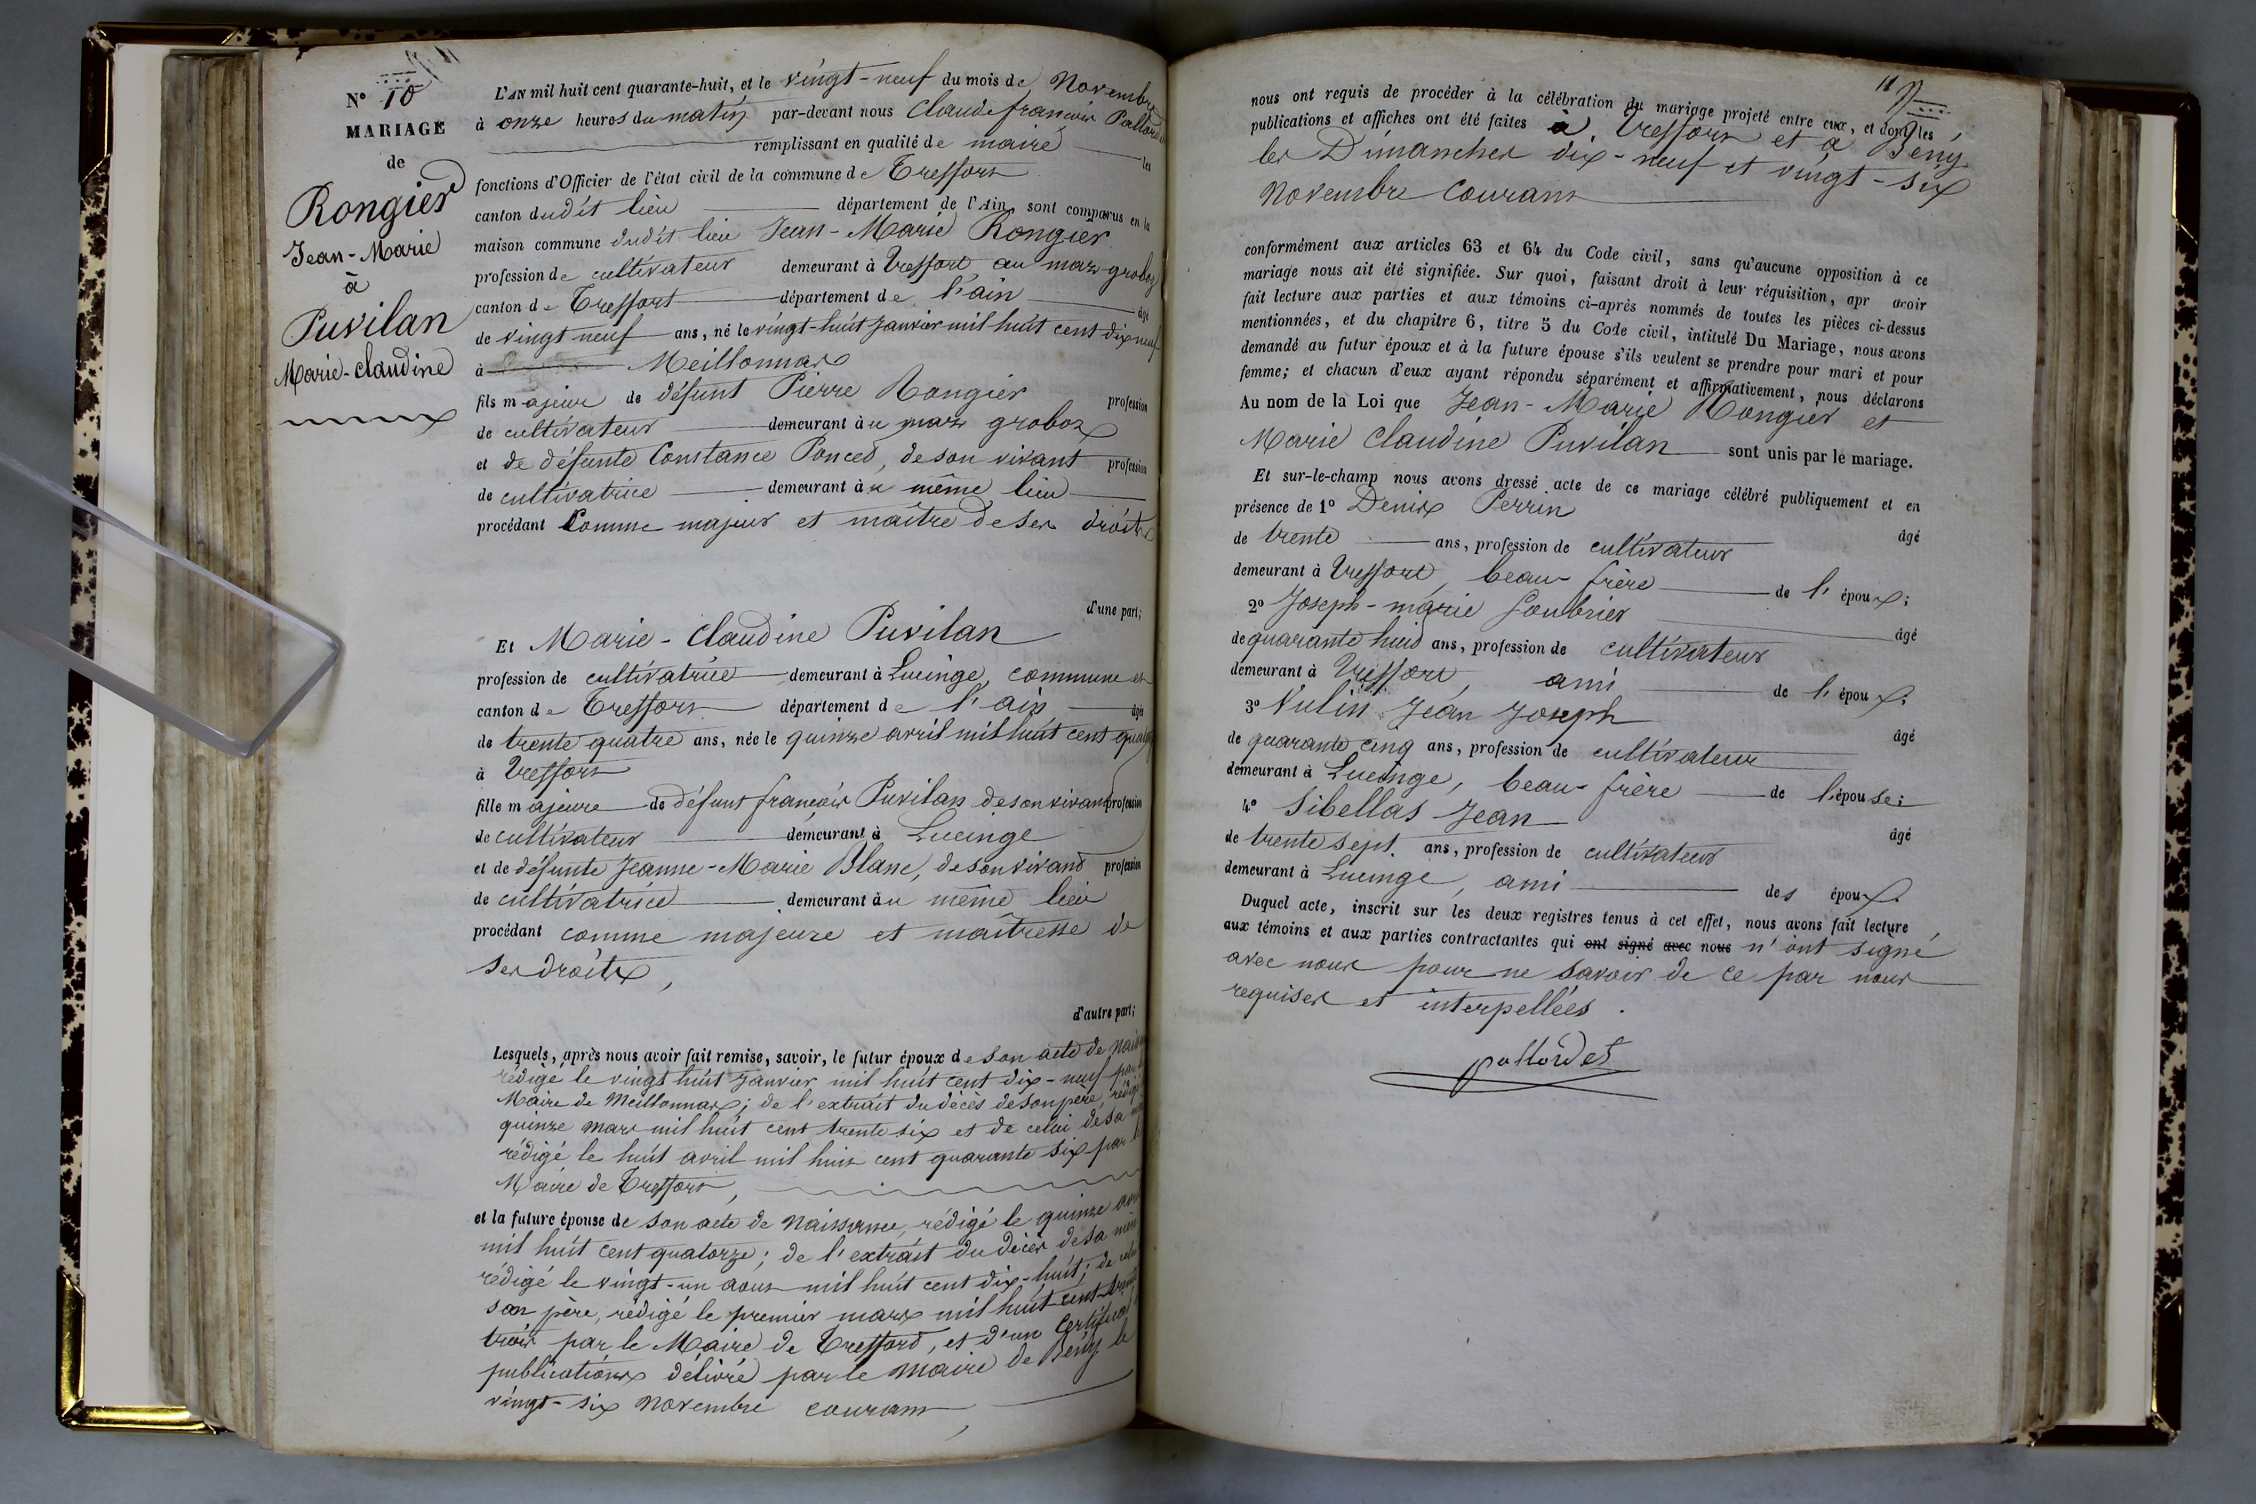 N° 10
MARIAGE
de
Rongier
Jean-Marie
à
Puvilan
Marie-Claudine
L'AN mil huit cent quarante-huit, et le vingt-neuf du mois de Novembre
à onze heures du matin par-devant nous Claude françois
remplissant en qualité de maire les
fonctions d'Officier de l'état civil de la commune de Treffort
canton dudit lieu département de l'Ain, sont comparus en la
maison commune dudit lieu Jean-Marie Rongier
profession de cultivateur demeurant à Treffort, au mas groboz
canton de Treffort département de l'ain âgé
de vingt neuf ans, né le vingt-huit Janvier mil huit cent dix neuf
à Meillonnas
fils majeur de défunt Pierre Rongier profession
de cultivateur demeurant au mas groboz
et de défunte Constance Poncet, de son vivant profession
de cultivatrice demeurant au même lieu
procédant Comme majeur et maître de ses droits
d'une part;
Et Marie-Claudine Puvilan
profession de cultivatrice demeurant à Lucinge, commune et
canton de Treffort département de l'ain âgée
de trente quatre ans, née le quinze avril mil huit cent
à Treffort
fille majeure de défunt françois Puvilan de son vivant profession
de cultivateur demeurant à Lucinge
et de défunte Jeanne-Marie Blanc, de son vivant profession
de cultivatrice demeurant au même lieu
procédant comme majeure et maîtresse de
ses droits,
d'autre part;
Lesquels, après nous avoir fait remise, savoir, le futur époux de son acte de
rédigé le vingt huit Janvier mil huit cent dix-neuf par
Maire de Meillonnas; de l'extrait du décès de son père, rédigé
quinze mars mil huit cent trente six et de celui de sa
rédigé le huit avril mil huit cent quarante six par le
Maire de Treffort,
et la future épouse de son acte de Naissance, rédigé le quinze
mil huit cent quatorze; de l'extrait du décès de sa mère
rédigé le vingt-un aout mil huit cent dix-huit; de
son père, rédigé le premier mars mil huit cent trente
trois par le Maire de Treffort, et d'un Certificat
publications délivré par le maire de Bény le
vingt-six Novembre courant,
11
nous ont requis de procéder à la célébration du mariage projeté entre eux, et dont les
publications et affiches ont été faites à Treffort et à Bény
les Dimanches dix-neuf et vingt-six
Novembre Courant
conformément aux articles 63 et 64 du Code civil, sans qu'aucune opposition à ce
mariage nous ait été signifiée. Sur quoi, faisant droit à leur réquisition, apr avoir
fait lecture aux parties et aux témoins ci-après nommés de toutes les pièces ci-dessus
mentionnées, et du chapitre 6, titre 5 du Code civil, intitulé Du Mariage, nous avons
demandé au futur époux et à la future épouse s'ils veulent se prendre pour mari et pour
femme; et chacun d'eux ayant répondu séparément et affirmativement, nous déclarons
Au nom de la Loi que Jean-Marie Rongier et
Marie Claudine Puvilan sont unis par le mariage.
Et sur-le-champ nous avons dressé acte de ce mariage célébré publiquement et en
présence de 1° Denis Perrin âgé
de trente ans, profession de cultivateur
demeurant à Treffort, beau-frère de l'époux;
2° Joseph-marie Soubrier âgé
de quarante huit ans, profession de cultivateur
demeurant à Treffort, ami de l'époux;
3° Vulin Jean Joseph âgé
de quarante cinq ans, profession de cultivateur
demeurant à Lucinge, beau-frère de l'épouse;
4° Sibellas Jean âgé
de trente sept ans, profession de cultivateur
demeurant à Lucinge, ami des époux.
Duquel acte, inscrit sur les deux registres tenus à cet effet, nous avons fait lecture
aux témoins et aux parties contractantes qui ont signé avec nous n'ont signé
avec nous pour ne savoir de ce par nous
requises et interpellées.